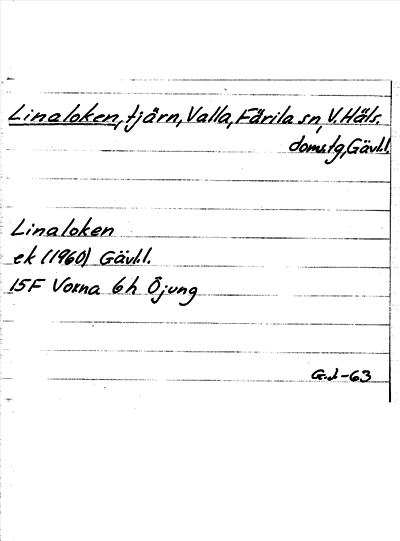 Linaloken, tjärn, Valla, Färila sn, V. Häls.
domstg, Gävl.l.
Linaloken
ek (1960) Gävl.l.
15F Voxna 6h Öjung
G.J-63